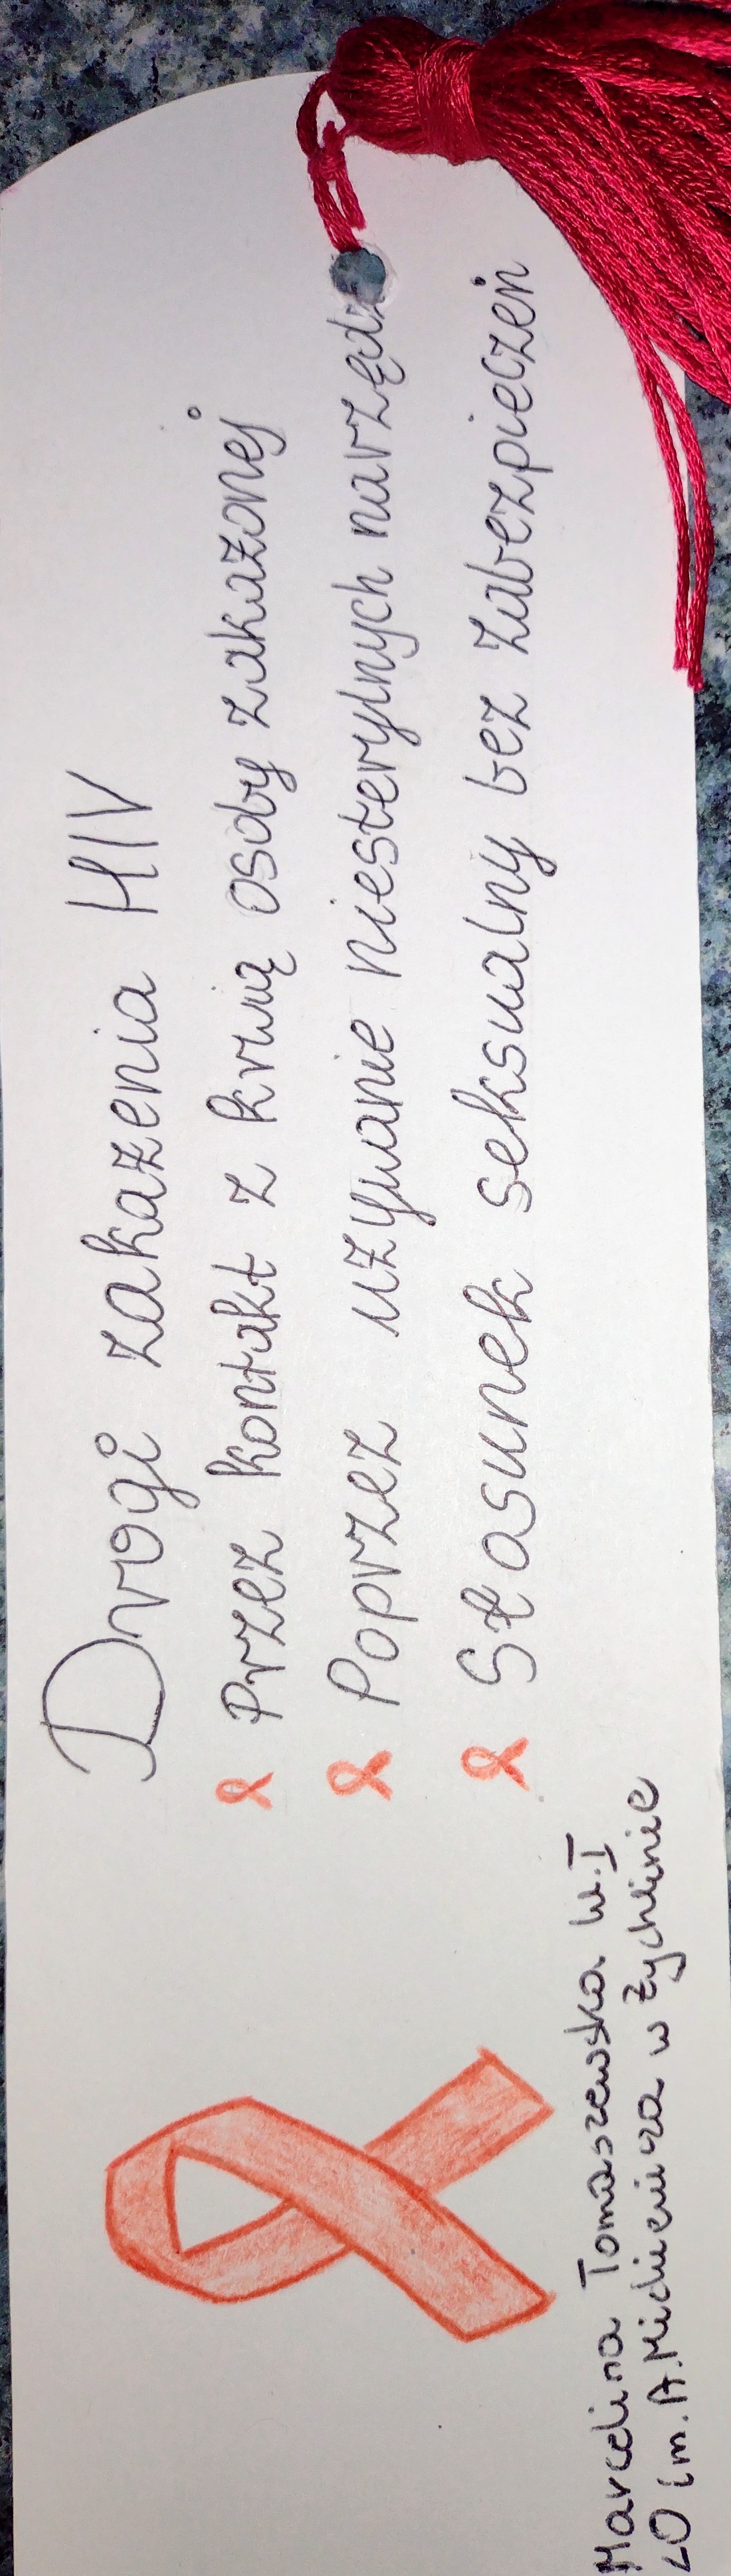 Drogi zakażenia HIV
Przez kontakt z krwią osoby zakażonej
Poprzez używanie niesterylnych narzędzi
Stosunek seksualny bez zabezpieczeń
Marcelina Tomaszewska kl. I
LO im. A. Mickiewicza w Żychlinie